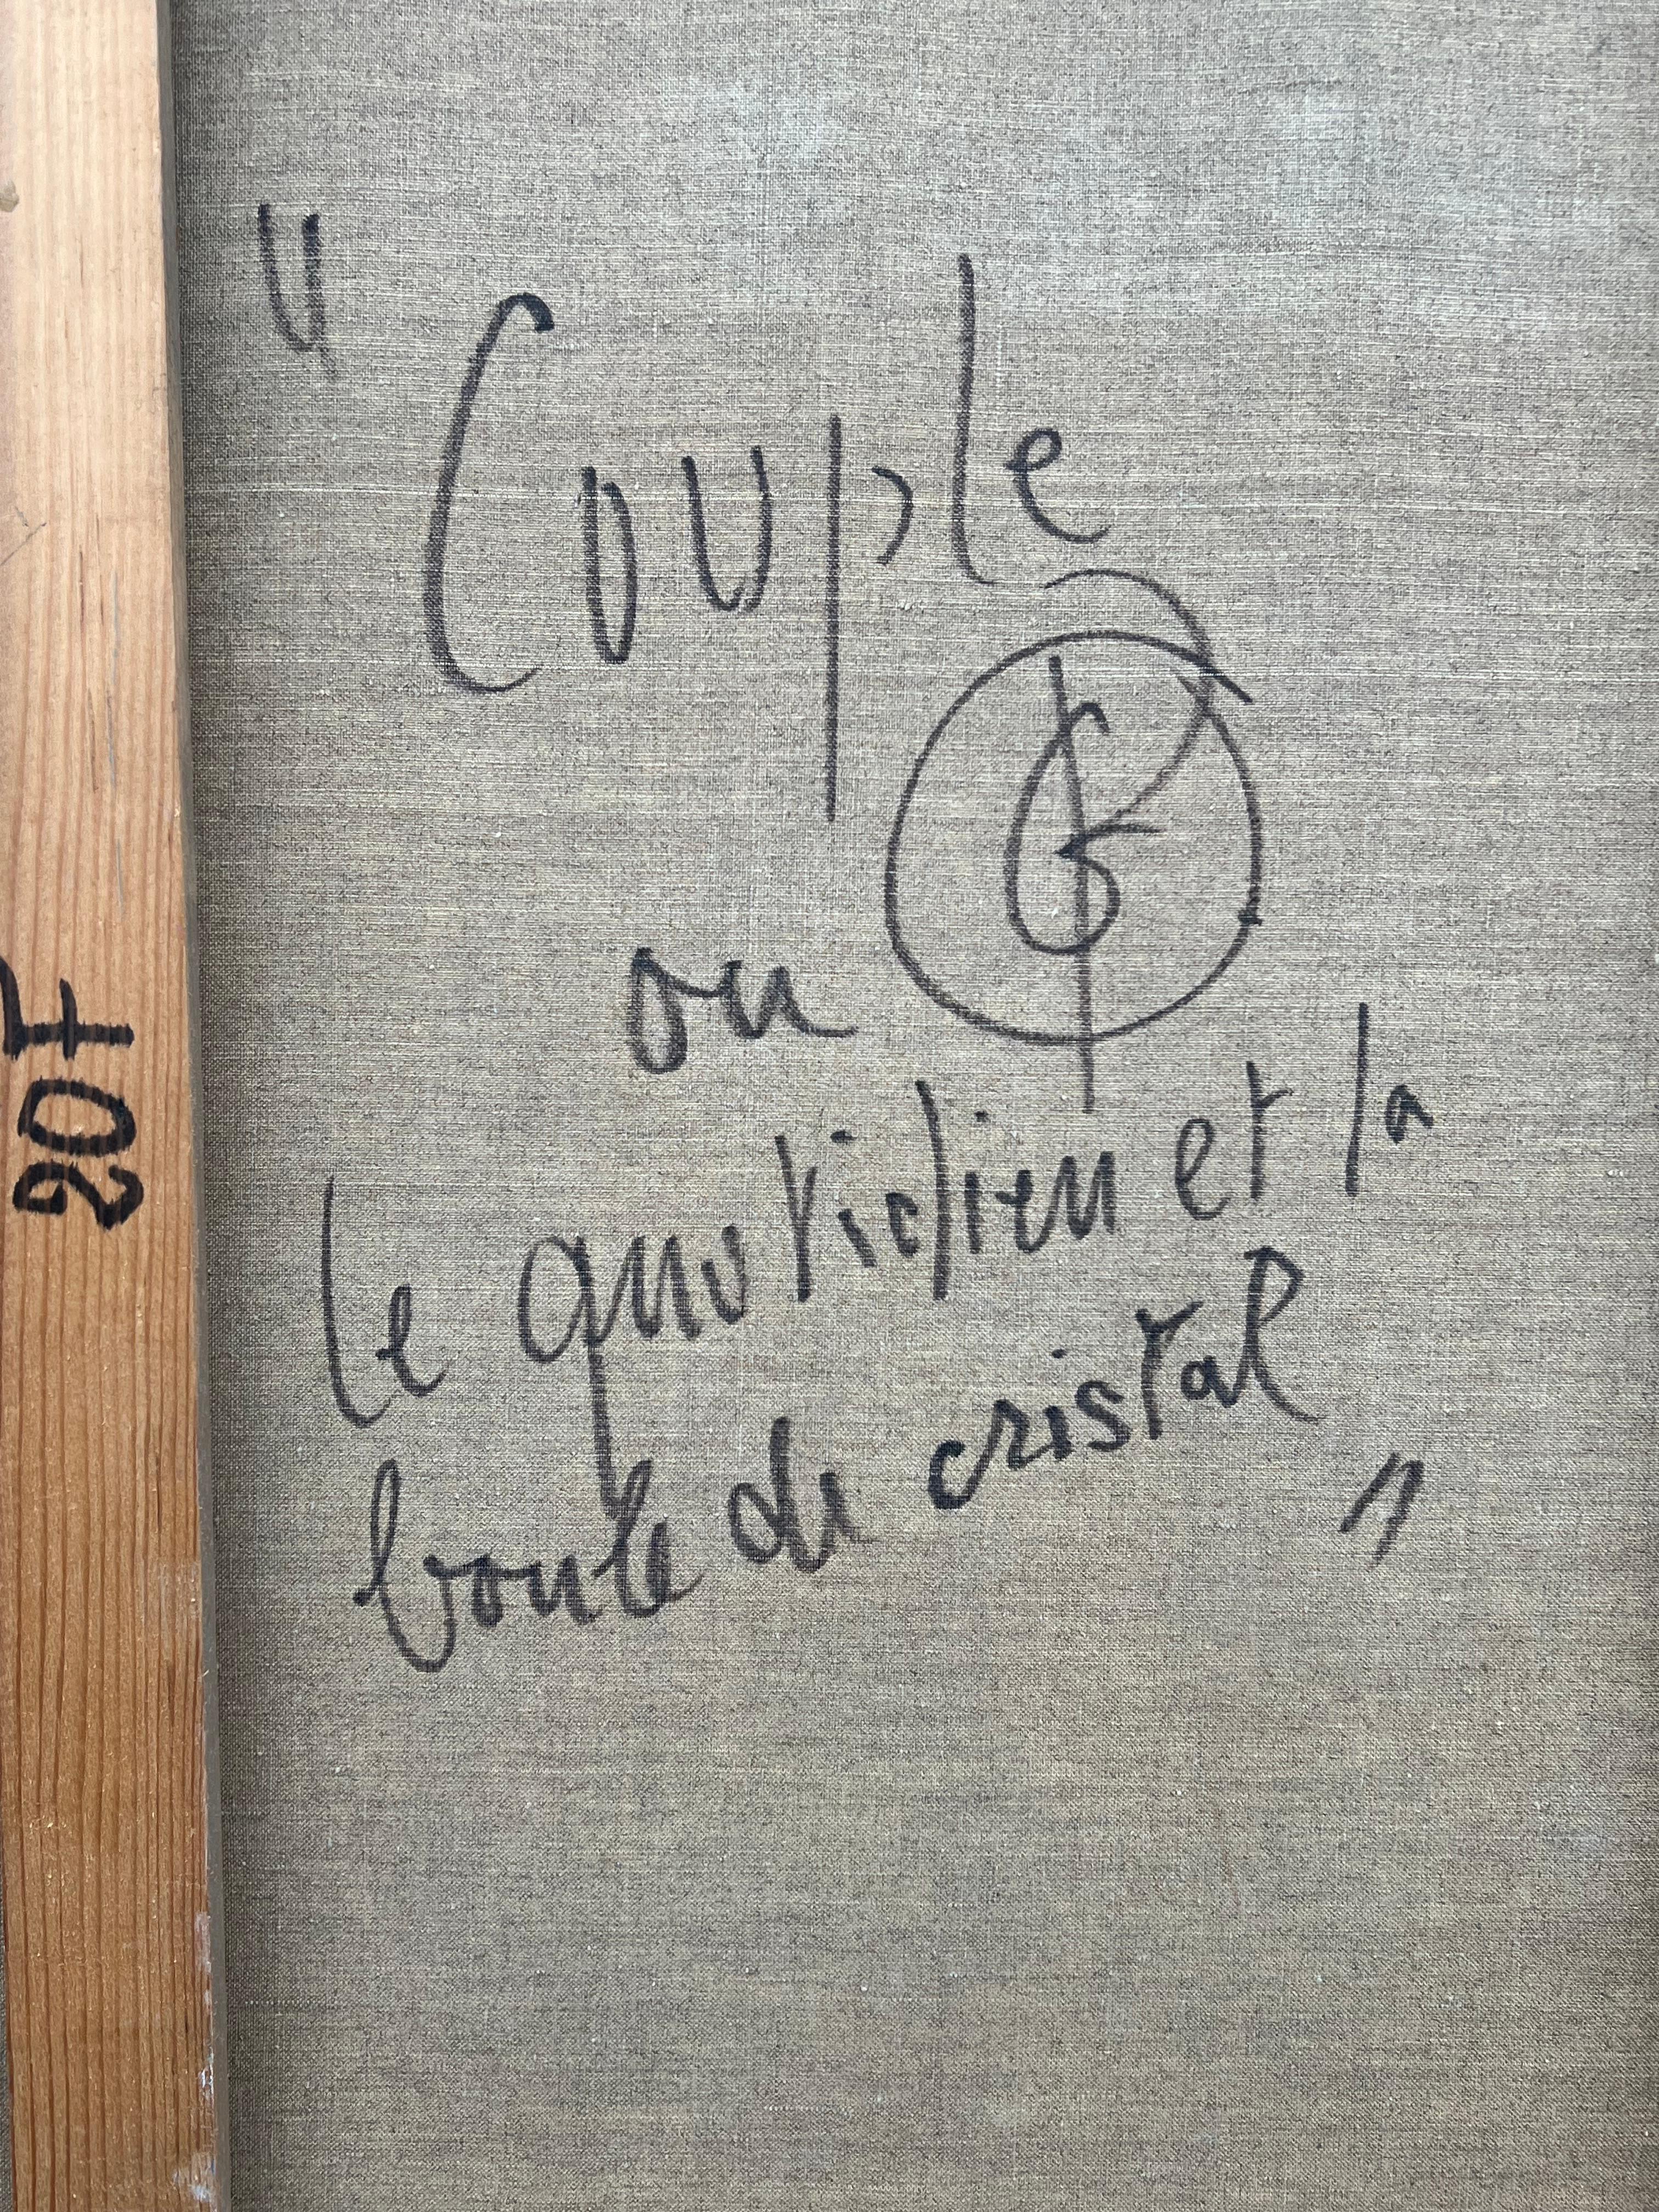 " Couple
ou
le quotidien et la
boule de cristal "
20F